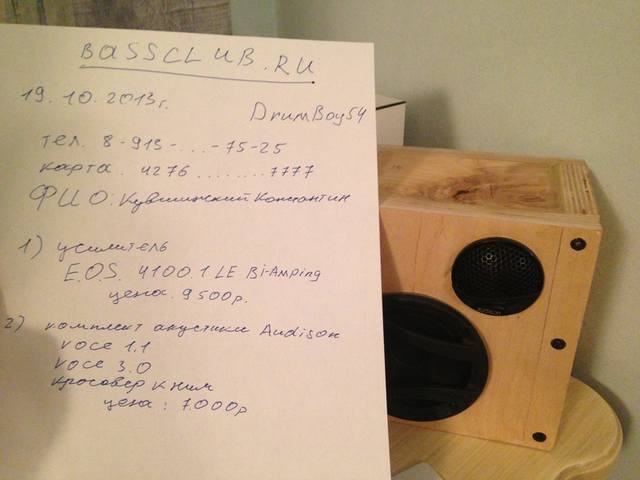 BASSCLUB.RU
19.10.2013г.
DrumBoy54
тел. 8-913-....-75-25
карта. 4276........7777
ФИО: Кувшинский Константин
1) усилитель
E.O.S. 4100.1 LE Bi-Amping
цена. 9500р.
2) комплект акустики Audison
voce 1.1
voce 3.0
кросовер к ним
цена: 7000р